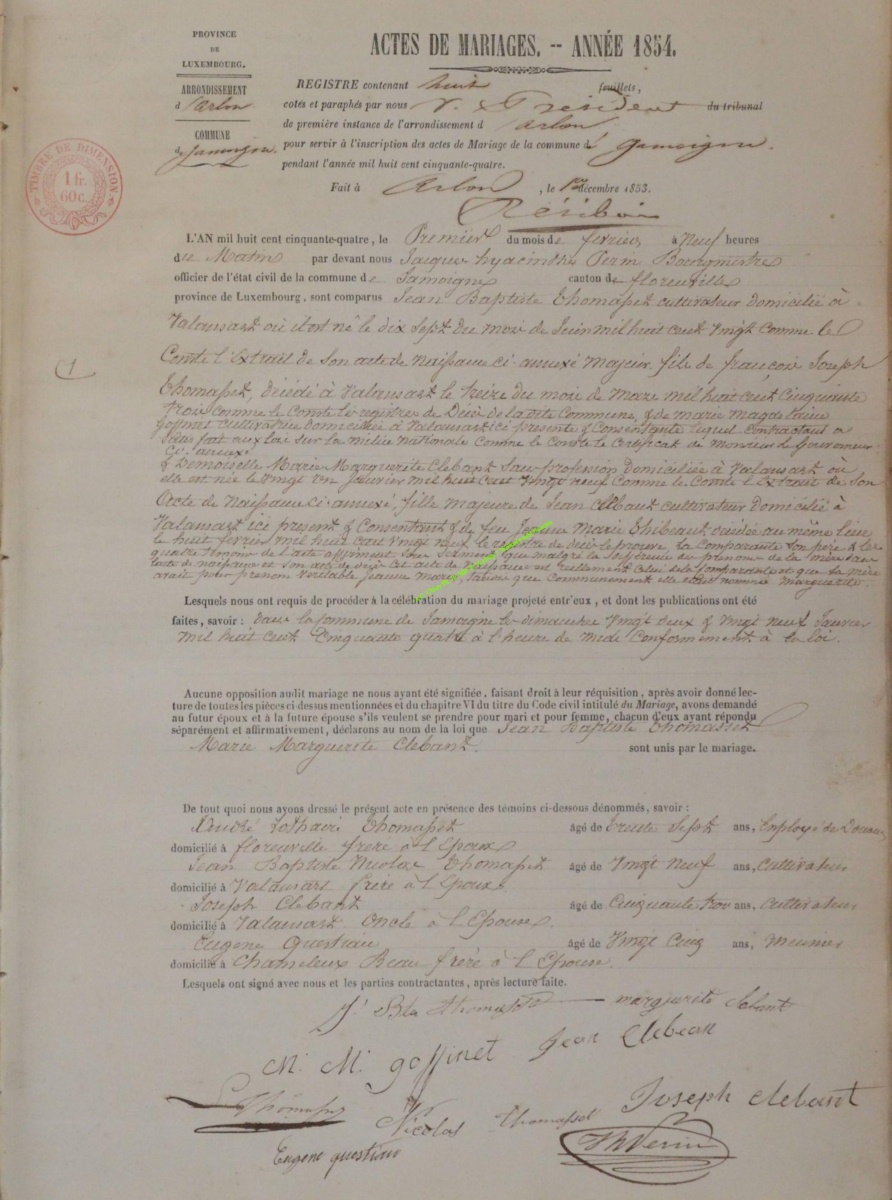 PROVINCE
DE
LUXEMBOURG.
ARRONDISSEMENT
d'Arlon
COMMUNE
de Jamoigne
TIMBRE DE DIMENSION
1 fr.
60 c.
ACTES DE MARIAGES. -- ANNÉE 1854.
REGISTRE contenant huit feuillets,
cotés et paraphés par nous V. Président du tribunal
de première instance de l'arrondissement d Arlon
pour servir à l'inscription des actes de Mariage de la commune de Jamoigne
pendant l'année mil huit cent cinquante-quatre.
Fait à Arlon, le 1er décembre 1853.
L'AN mil huit cent cinquante-quatre, le Premier du mois de fevrier à Neuf heures
du Matin par devant nous Jacques hyacinthe Perin Bourgmestre
officier de l'état civil de la commune de Jamoigne canton de florenville
province de Luxembourg, sont comparus Jean Baptiste Thomasset cultivateur domicilié à
Valansart où il est né le dix sept du mois de Juin mil huit cent Vingt comme le
Conste l'Extrait de Son acte de Naissance ci-annexé Majeur fils de françois Joseph
(1)
Thomasset, décédé à Valansart le treize du mois de Mars mil huit cent Cinquante
trois comme le Conste le registre de Décès de la dite Commune, & de marie Magdelaine
goffinet cultivatrice domiciliée à Valansart ici presente & Consentente lequel Contractant a
Satisfait aux lois sur la milice nationale Comme le Conste le Certificat de Monsieur le Gouverneur
Ci-annexé
& Demoiselle Marie Marguerite Clebant Sans profession Domiciliée à Valansart où
elle est née le Vingt un Janvier mil huit cent Vingt neuf Comme le Conste l'Extrait de Son
Acte de Naissance ci-annexé, fille majeure de Jean Clebant cultivateur Domicilié à
Valansart ici present & Consentant & de feu Jeanne Marie Thibeaut décédée au même lieu
le huit fevrier mil huit cent Vingt neuf le registre de décès le prouve la Comparante Son père & les
quatre témoins de l'acte affirment Sous Serment que malgré la de prenoms de la mère au
l'acte de naissance et Son acte de décès cet acte de naissance est reellement Celui de la Comparante et que Sa mère
avait pour prenom veritable jeanne marie tandis que Communement elle etait nommée marguerite
Lesquels nous ont requis de procéder à la célébration du mariage projeté entr'eux, et dont les publications ont été
faites, savoir : Dans la Commune de Jamoigne le dimanche Vingt deux & Vingt neuf Janvier
mil huit cent Cinquante quatre à l'heure de midi Conformément à la loi.
Aucune opposition audit mariage ne nous ayant été signifiée, faisant droit à leur réquisition, après avoir donné lec-
ture de toutes les pièces ci-dessus mentionnées et du chapitre VI du titre du Code civil intitulé du Mariage, avons demandé
au futur époux et à la future épouse s'ils veulent se prendre pour mari et pour femme, chacun d'eux ayant répondu
séparément et affirmativement, déclarons au nom de la loi que Jean Baptiste Thomasset
Marie Marguerite Clebant. sont unis par le mariage.
De tout quoi nous ayons dressé le présent acte en présence des témoins ci-dessous dénommés, savoir :
André Lothaire Thomasset âgé de trente Sept ans, Employé de Douanes
domicilié à florenville frère à l'Epoux
Jean Baptiste Nicolas Thomasset âgé de Vingt Neuf ans, Cultivateur
domicilié à Valansart frère à l'Epoux
Joseph Clebant âgé de Cinquante trois ans, Cultivateur
domicilié à Valansart Oncle à l'Epouse
Eugene Questiau âgé de Vingt Cinq ans, meunier
domicilié à Chameleux Beau frère à l'Epouse.
Lesquels ont signé avec nous et les parties contractantes, après lecture faite.
J. Bte thomasset marguerite Clebant
M. M. goffinet Jean Clebean
L. Thomasset Nicolas Thomasset Joseph Clebant
Eugene questiau JhPerin